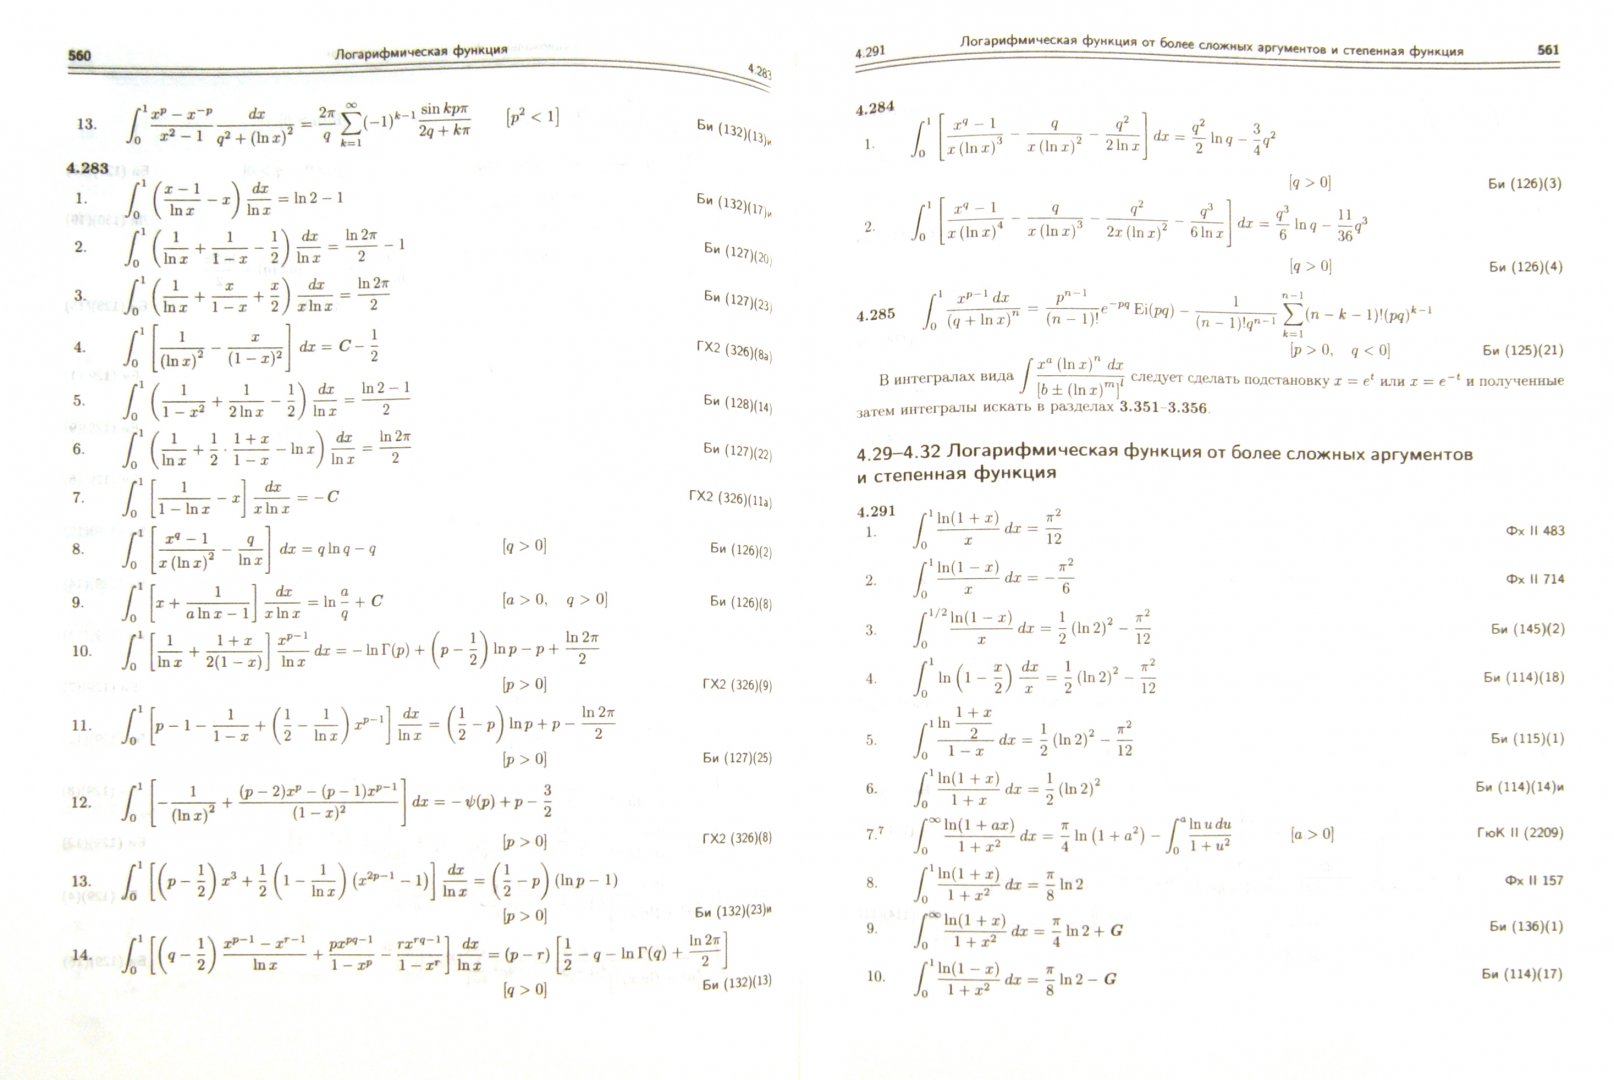 560 Логарифмическая функция 4.283
13. \int_0^1 \frac{x^p - x^{-p}}{x^2 - 1} \frac{dx}{q^2 + (\ln x)^2} = \frac{2\pi}{q} \sum_{k=1}^{\infty} (-1)^{k-1} \frac{\sin kp\pi}{2q + k\pi} [p^2 < 1] Би (132)(13)и
4.283
1. \int_0^1 \left( \frac{x-1}{\ln x} - x \right) \frac{dx}{\ln x} = \ln 2 - 1 Би (132)(17)и
2. \int_0^1 \left( \frac{1}{\ln x} + \frac{1}{1-x} - \frac{1}{2} \right) \frac{dx}{\ln x} = \frac{\ln 2\pi}{2} - 1 Би (127)(20)
3. \int_0^1 \left( \frac{1}{\ln x} + \frac{x}{1-x} + \frac{x}{2} \right) \frac{dx}{x \ln x} = \frac{\ln 2\pi}{2} Би (127)(23)
4. \int_0^1 \left[ \frac{1}{(\ln x)^2} - \frac{x}{(1-x)^2} \right] dx = C - \frac{1}{2} ГХ2 (326)(8а)
5. \int_0^1 \left( \frac{1}{1-x^2} + \frac{1}{2 \ln x} - \frac{1}{2} \right) \frac{dx}{\ln x} = \frac{\ln 2 - 1}{2} Би (128)(14)
6. \int_0^1 \left( \frac{1}{\ln x} + \frac{1}{2} \cdot \frac{1+x}{1-x} - \ln x \right) \frac{dx}{\ln x} = \frac{\ln 2\pi}{2} Би (127)(22)
7. \int_0^1 \left[ \frac{1}{1-\ln x} - x \right] \frac{dx}{x \ln x} = -C ГХ2 (326)(11а)
8. \int_0^1 \left[ \frac{x^q - 1}{x (\ln x)^2} - \frac{q}{\ln x} \right] dx = q \ln q - q [q > 0] Би (126)(2)
9. \int_0^1 \left[ x + \frac{1}{a \ln x - 1} \right] \frac{dx}{x \ln x} = \ln \frac{a}{q} + C [a > 0, q > 0] Би (126)(8)
10. \int_0^1 \left[ \frac{1}{\ln x} + \frac{1+x}{2(1-x)} \right] \frac{x^{p-1}}{\ln x} dx = -\ln \Gamma(p) + \left( p - \frac{1}{2} \right) \ln p - p + \frac{\ln 2\pi}{2}
[p > 0] ГХ2 (326)(9)
11. \int_0^1 \left[ p - 1 - \frac{1}{1-x} + \left( \frac{1}{2} - \frac{1}{\ln x} \right) x^{p-1} \right] \frac{dx}{\ln x} = \left( \frac{1}{2} - p \right) \ln p + p - \frac{\ln 2\pi}{2}
[p > 0] Би (127)(25)
12. \int_0^1 \left[ -\frac{1}{(\ln x)^2} + \frac{(p-2)x^p - (p-1)x^{p-1}}{(1-x)^2} \right] dx = -\psi(p) + p - \frac{3}{2}
[p > 0] ГХ2 (326)(8)
13. \int_0^1 \left[ \left( p - \frac{1}{2} \right) x^3 + \frac{1}{2} \left( 1 - \frac{1}{\ln x} \right) (x^{2p-1} - 1) \right] \frac{dx}{\ln x} = \left( \frac{1}{2} - p \right) (\ln p - 1)
[p > 0] Би (132)(23)и
14. \int_0^1 \left[ \left( q - \frac{1}{2} \right) \frac{x^{p-1} - x^{r-1}}{\ln x} + \frac{px^{pq-1}}{1-x^p} - \frac{rx^{rq-1}}{1-x^r} \right] \frac{dx}{\ln x} = (p-r) \left[ \frac{1}{2} - q - \ln \Gamma(q) + \frac{\ln 2\pi}{2} \right]
[q > 0] Би (132)(13)
4.291 Логарифмическая функция от более сложных аргументов и степенная функция 561
4.284
1. \int_0^1 \left[ \frac{x^q - 1}{x (\ln x)^3} - \frac{q}{x (\ln x)^2} - \frac{q^2}{2 \ln x} \right] dx = \frac{q^2}{2} \ln q - \frac{3}{4} q^2
[q > 0] Би (126)(3)
2. \int_0^1 \left[ \frac{x^q - 1}{x (\ln x)^4} - \frac{q}{x (\ln x)^3} - \frac{q^2}{2x (\ln x)^2} - \frac{q^3}{6 \ln x} \right] dx = \frac{q^3}{6} \ln q - \frac{11}{36} q^3
[q > 0] Би (126)(4)
4.285 \int_0^1 \frac{x^{p-1} dx}{(q + \ln x)^n} = \frac{p^{n-1}}{(n-1)!} e^{-pq} Ei(pq) - \frac{1}{(n-1)! q^{n-1}} \sum_{k=1}^{n-1} (n-k-1)! (pq)^{k-1}
[p > 0, q < 0] Би (125)(21)
В интегралах вида \int \frac{x^a (\ln x)^n dx}{[b \pm (\ln x)^m]^l} следует сделать подстановку x = e^t или x = e^{-t} и полученные
затем интегралы искать в разделах 3.351–3.356.
4.29–4.32 Логарифмическая функция от более сложных аргументов
и степенная функция
4.291
1. \int_0^1 \frac{\ln(1+x)}{x} dx = \frac{\pi^2}{12} Фх II 483
2. \int_0^1 \frac{\ln(1-x)}{x} dx = -\frac{\pi^2}{6} Фх II 714
3. \int_0^{1/2} \frac{\ln(1-x)}{x} dx = \frac{1}{2} (\ln 2)^2 - \frac{\pi^2}{12} Би (145)(2)
4. \int_0^1 \ln \left( 1 - \frac{x}{2} \right) \frac{dx}{x} = \frac{1}{2} (\ln 2)^2 - \frac{\pi^2}{12} Би (114)(18)
5. \int_0^1 \frac{\ln \frac{1+x}{2}}{1-x} dx = \frac{1}{2} (\ln 2)^2 - \frac{\pi^2}{12} Би (115)(1)
6. \int_0^1 \frac{\ln(1+x)}{1+x} dx = \frac{1}{2} (\ln 2)^2 Би (114)(14)и
7.⁷ \int_0^{\infty} \frac{\ln(1+ax)}{1+x^2} dx = \frac{\pi}{4} \ln (1+a^2) - \int_0^a \frac{\ln u \, du}{1+u^2} [a > 0] ГюК II (2209)
8. \int_0^1 \frac{\ln(1+x)}{1+x^2} dx = \frac{\pi}{8} \ln 2 Фх II 157
9. \int_0^{\infty} \frac{\ln(1+x)}{1+x^2} dx = \frac{\pi}{4} \ln 2 + G Би (136)(1)
10. \int_0^1 \frac{\ln(1-x)}{1+x^2} dx = \frac{\pi}{8} \ln 2 - G Би (114)(17)